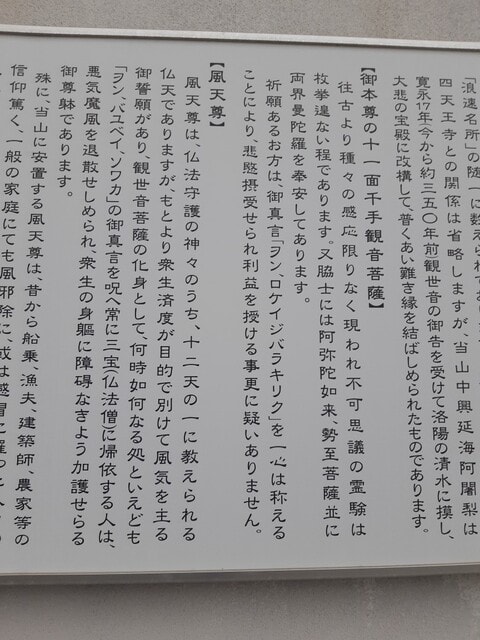 「浪速名所」の随一に数えられており
四天王寺との関係は省略しますが、当山中興延海阿闍梨は
寛永17年今から約三五〇年前観世音の御告を受けて洛陽の清水に摸し、
大悲の宝殿に改構して、普くあい難き縁を結ばしめられたものであります。
【御本尊の十一面千手観音菩薩】
往古より種々の感応限りなく現われ不可思議の霊験は
枚挙遑ない程であります。又脇士には阿弥陀如来勢至菩薩並に
両界曼陀羅を奉安してあります。
祈願あるお方は、御真言「ヲン、ロケイジバラキリク」を一心は称える
ことにより、悲愍摂受せられ利益を授ける事更に疑いありません。
【風天尊】
風天尊は、仏法守護の神々のうち、十二天の一に教えられる
仏天でありますが、もとより衆生済度が目的で別けて風気を主る
御誓願があり、観世音菩薩の化身として、何時如何なる処といえども
「ヲン、バユベイ、ソワカ」の御真言を呪へ常に三宝(仏法僧)に帰依する人は、
悪気魔風を退散せしめられ、衆生の身軀に障碍なきよう加護せらる
御尊躰であります。
殊に、当山に安置する風天尊は、昔から船乗、漁夫、建築師、農家等の
信仰篤く、一般の家庭にても風邪除に、或は感冒に罹った